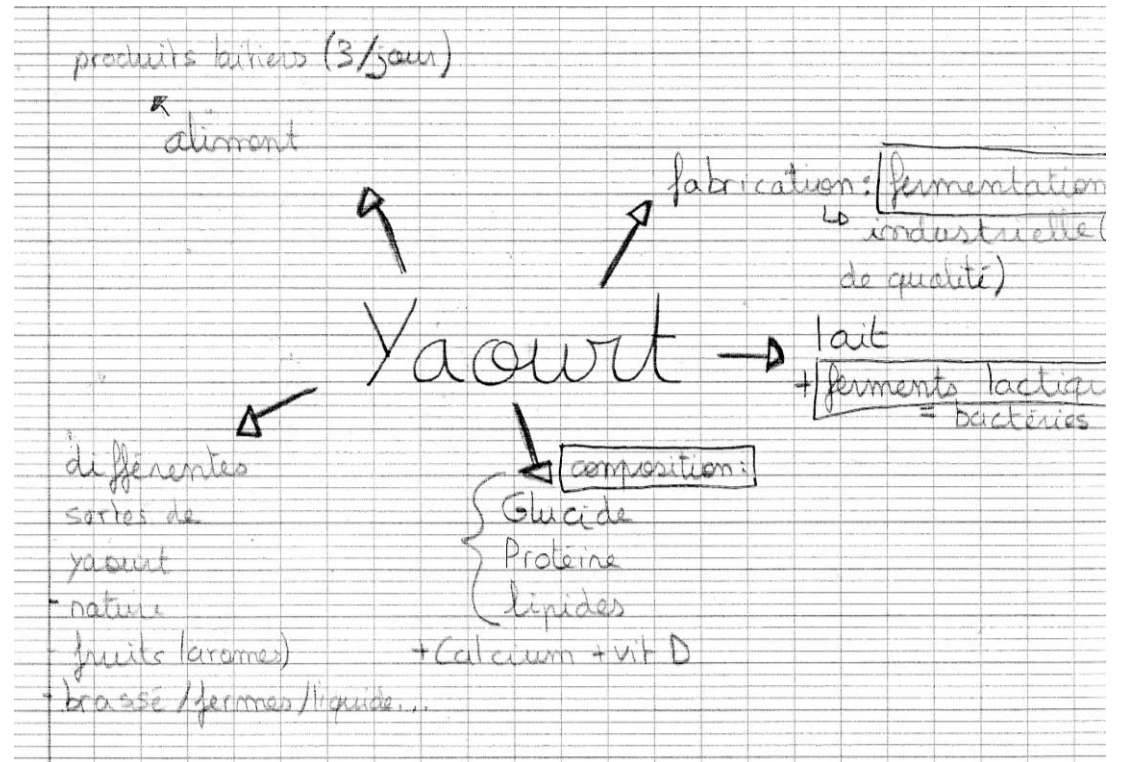 produits laitiers (3/jour)
aliment
fabrication: fermentation
industrielle (
de qualité)
Yaourt
lait
+ ferments lactiqu
= bactéries
différentes
sortes de
yaourt
- nature
- fruits (aromes)
- brassé/fermes/liquide...
composition:
Glucide
Protéine
lipides
+ Calcium + vit D